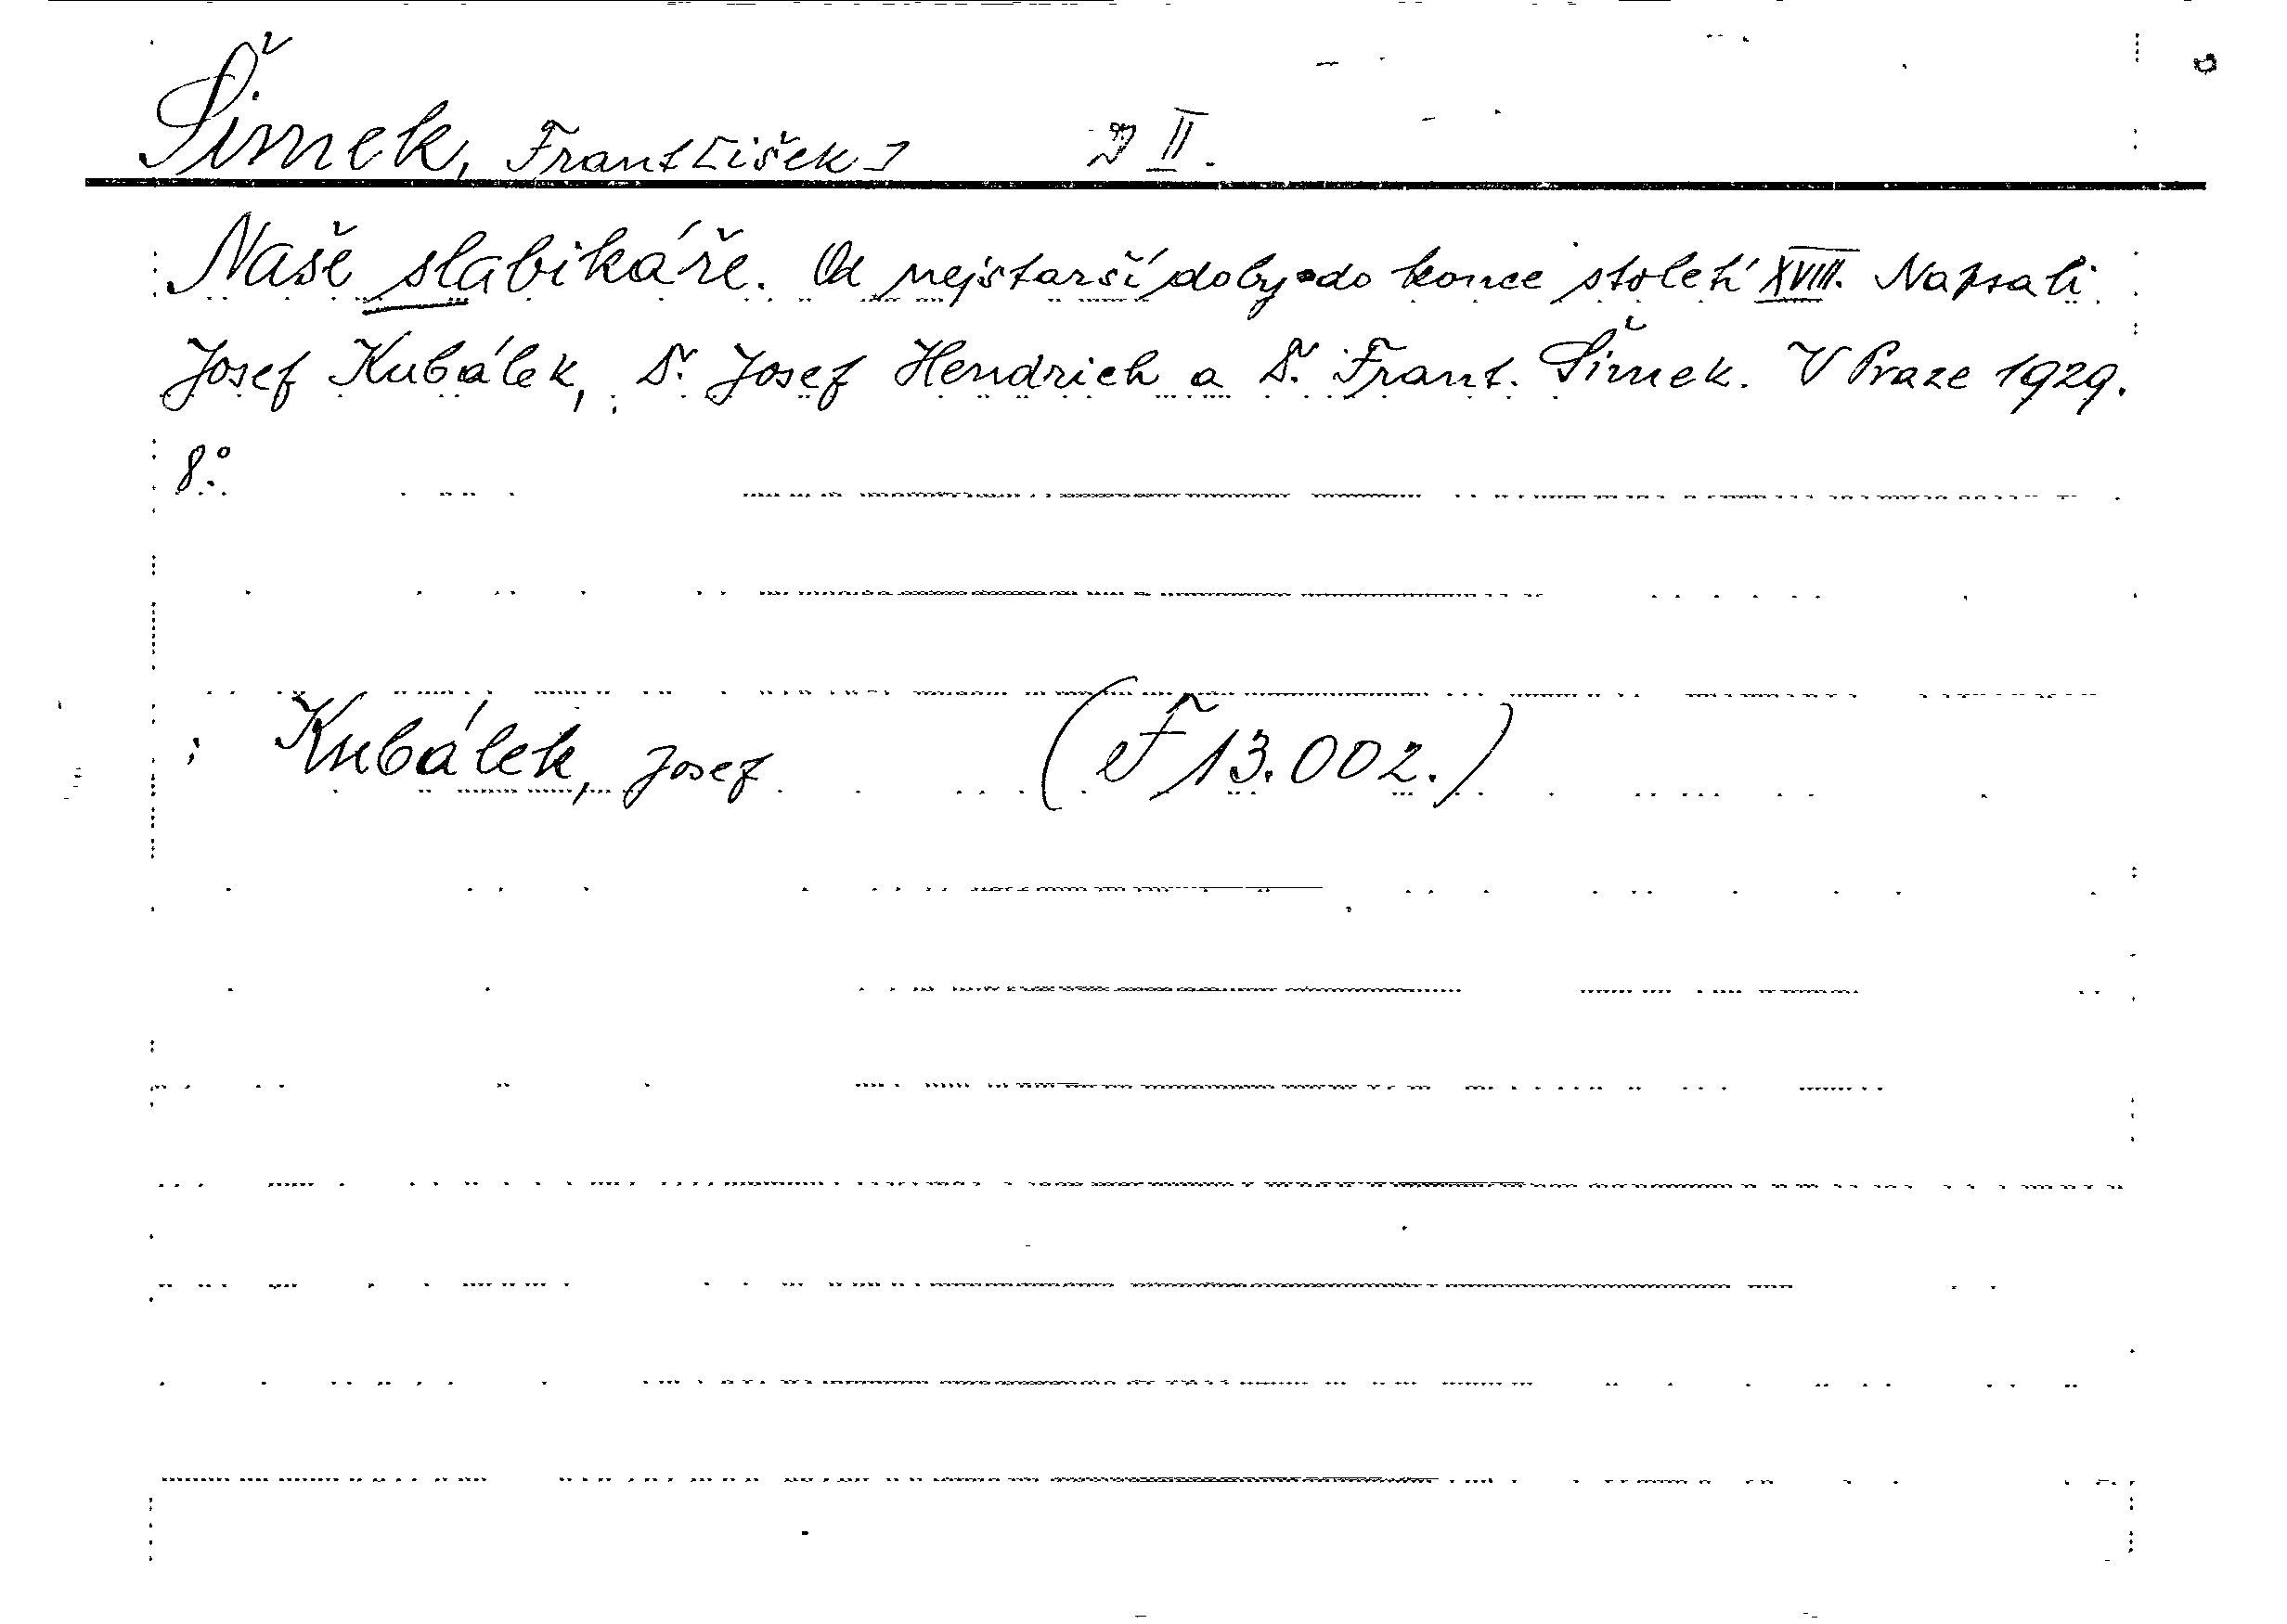 Šimek, Frant[išek] II.
Naše slabikáře. Od nejstarší doby do konce století XVIII. Napsali
Josef Kubálek, Dr. Josef Hendrich a Dr. Frant. Šimek. V Praze 1929.
8°.
Kubálek, Josef (F 13.002.)